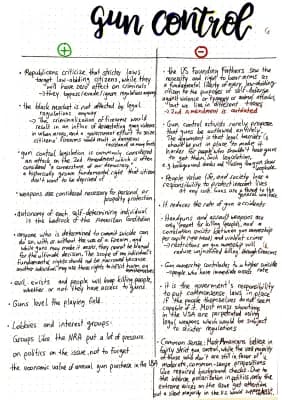 gun control
- Republicans criticise that stricter laws
target law-abiding citizens, while they
will have zero effect on criminals
→ they bypass/evade/ignore regulations anyway
- the black market is not affected by legal
regulations anyway
→ The criminalization of firearms would
result in an influx of
in urban areas, and a government effort to seize
citizens' firearms would lead in dangerous
- gun control legislation is commonly considered
"an attack on the 2nd Amendment, which is often
considered a cornerstone of our democracy"
→ historically grown fundamental right that citizens
don't want to be deprived of
- weapons are considered necessary for personal or
property protection
- autonomy of each self-determining individual
is the bedrock of the American Constitution
- anyone who is determined to commit suicide can
do so with or without the use of a firearm, and
while guns may make it easier, they cannot be blamed
for the ultimate decision. The scope of an individual's
fundamental rights should not be narrowed because
another individual may use these rights to inflict harm on
themselves
- evil exists and people will keep killing people,
whether or not they have access to guns.
- Guns level the playing field.
- Lobbies and interest groups:
Groups like the NRA put a lot of pressure
on politics on the issue, not to forget
the economic value of annual gun purchase in the USA
- the US Founding Fathers saw the
necessity and right to bear arms as
a fundamental liberty of every law-abiding
citizen for the purposes of self-defense
against violence or tyranny or animal attacks,
but we live in different times
→ 2nd amendment is outdated
- Gun control activists rarely propose
that guns be outlawed entirely.
The argument is that legal barriers
should be put in place to make it
harder for people who shouldn't have guns
to get them, such legislation,
e.g. background checks and waiting
- People value life, and society has a
responsibility to protect innocent lives
at any cost. Guns are a threat to the
- It reduces the rate of gun accidents
- Handguns and assault weapons are
only meant for killing people, and a
correlation exists between gun ownership
per capita and violent crime
→ restrictions on gun ownership will
reduce unjustified killing
- Gun ownership contributes to a higher suicide
rate
- people who have immediate access
- it is the government's responsibility
to put commonsense laws in place
if the people themselves do not seem
capable of it. Most mass shooting
in the USA are perpetrated using
legal weapons which would be subject
to stricter regulations
- Common Sense: Most Americans believe in
fairly strict gun control, while the vast majority
of those who don't are still in favor of
moderate, common-sense propositions
like required background checks. Due to
the intense polarization in politics, only the
extreme voices on the issue get attention
but a silent majority in the US would support